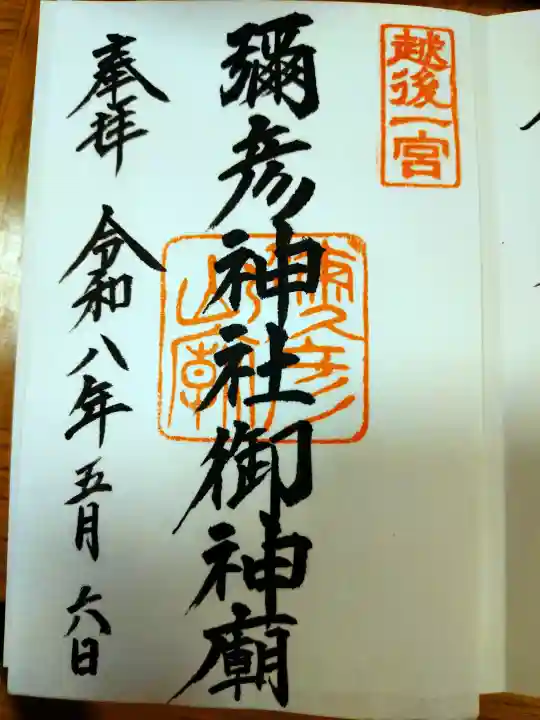 越後一宮
彌彦神社御神廟
奉拝 令和八年五月六日